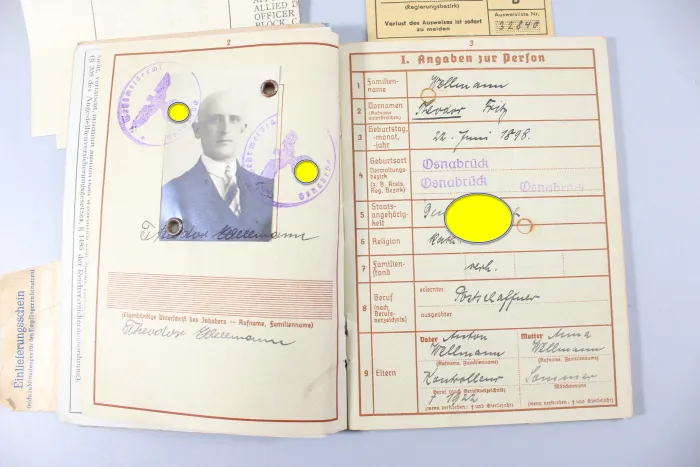 ALLIED D
OFFICER
BLOCK, C
(Regierungsbezirk)
Verlust des Ausweises ist sofort
zu melden
B
Ausweisliste Nr.
32840
2
Wehrmeldeamt
Osnabrück
Theodor Wellmann
(Eigenhändige Unterschrift des Inhabers — Rufname, Familienname)
Theodor Wellmann
Einlieferungsschein
3
I. Angaben zur Person
1 Familien-
name
Wellmann
2 Vornamen
(Rufname
unterstreichen)
Theodor Fritz
3 Geburtstag,
-monat,
-jahr
22. Juni 1898.
4 Geburtsort
Verwaltungs-
bezirk
(z. B. Kreis,
Reg. Bezirk)
Osnabrück
Osnabrück Osnabrück
5 Staats-
angehörig-
keit
6 Religion
Kath.
7 Familien-
stand
verh.
8 Beruf
(nach
Berufs-
verzeichnis)
erlernter
Postschaffner
ausgeübter
9 Eltern
Vater Anton
Wellmann
(Rufname, Familienname)
Kontrolleur
(Beruf nach Berufsverzeichnis)
† 1922
(wenn verstorben: † und Sterbejahr)
Mutter Anna
Wellmann
(Rufname, Familienname)
Sommer
Mädchenname
(wenn verstorben: † und Sterbejahr)